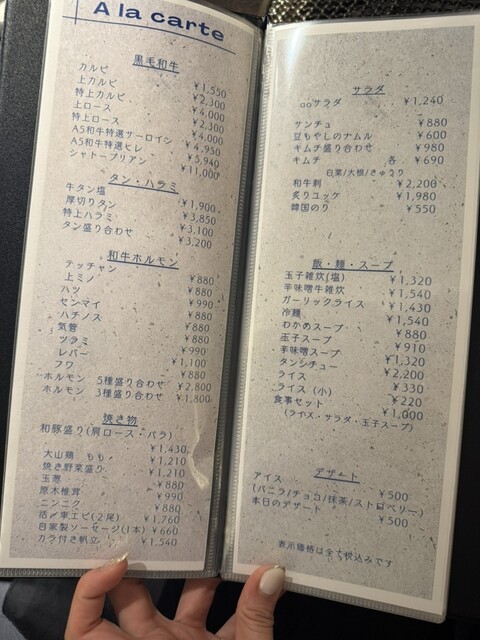 A la carte
黒毛和牛
カルビ ¥1,550
上カルビ ¥2,300
特上カルビ ¥4,000
上ロース ¥2,300
特上ロース ¥4,000
A5和牛特選サーロイン ¥4,950
A5和牛特選ヒレ ¥5,940
シャトーブリアン ¥11,000
タン・ハラミ
牛タン塩 ¥1,900
厚切りタン ¥3,850
特上ハラミ ¥3,100
タン盛り合わせ ¥3,200
和牛ホルモン
テッチャン ¥880
上ミノ ¥880
ハツ ¥990
センマイ ¥990
ハチノス ¥880
気管 ¥880
ツラミ ¥990
レバー ¥1,100
フワ ¥880
ホルモン 5種盛り合わせ ¥2,800
ホルモン 3種盛り合わせ ¥1,800
焼き物
和豚盛り(肩ロース・バラ) ¥1,430
大山鶏 もも ¥1,210
焼き野菜盛り ¥1,210
玉葱 ¥880
原木椎茸 ¥990
ニンニク ¥880
活〆車エビ(2尾) ¥1,760
自家製ソーセージ(1本) ¥660
カラ付き帆立 ¥1,540
サラダ
ooサラダ ¥1,240
サンチュ ¥880
豆もやしのナムル ¥600
キムチ盛り合わせ ¥980
キムチ 各 ¥690
白菜/大根/きゅうり
和牛刺 ¥2,200
炙りユッケ ¥1,980
韓国のり ¥550
飯・麺・スープ
玉子雑炊(塩) ¥1,320
辛味噌牛雑炊 ¥1,540
ガーリックライス ¥1,430
冷麺 ¥1,540
わかめスープ ¥880
玉子スープ ¥910
辛味噌スープ ¥1,320
タンシチュー ¥2,200
ライス ¥330
ライス(小) ¥220
食事セット ¥1,000
(ライス・サラダ・玉子スープ)
デザート
アイス ¥500
(バニラ/チョコ/抹茶/ストロベリー)
本日のデザート ¥500
表示価格は全て税込みです